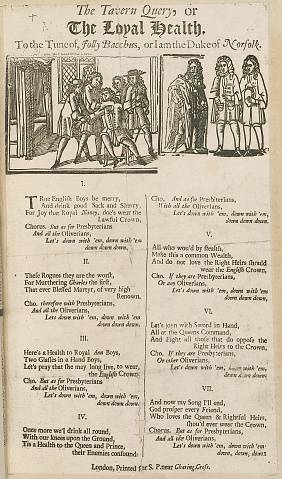 The Tavern Query, or
The Loyal Health.
To the Tune of, Jolly Bacchus, or I am the Duke of Norfolk.
I.
True English Boys be merry,
And drink good Sack and Sherry,
For Joy that Royal Nancy, doe's wear the
Lawful Crown,
Chorus. But as for Presbyterians
And all the Oliverians,
Let's down with 'em, down with 'em
down down down.
II.
These Rogues they are the worst,
For Murthering Charles the first,
That ever Blessed Martyr, of very high
Renown,
Cho. therefore with Presbyterians,
And all the Oliverians,
Lets down with 'em, down with 'em
down down down.
III.
Here's a Health to Royal Ann Boys,
Two Glasses in a Hand Boys,
Let's pray that she may long live, to wear,
the English Crown
Cho. But as for Presbyterians
And all the Oliverians,
Let's down with 'em, down with 'em,
down down down.
IV.
Once more we'l drink all round,
With our knees upon the Ground,
Tis a Health to the Queen and Prince,
their Enemies confound:
Cho. And as for Presbiterians,
With all the Oliverians,
Let's down with 'em, down with 'em,
down down down.
V.
All who wou'd by stealth,
Make this a common Wealth,
And do not love the Right Heirs should
wear the English Crown,
Cho. If they are Presbyterians,
Or are Oliverians,
Let's down with 'em, down with 'em,
down down down.
VI.
Let's joyn with Sword in Hand,
All at the Queens Command,
And Fight all those that do oppose the
Right Heirs to the Crown,
Cho. If they are Presbyterians,
Or other Oliverians,
Let's down with 'em, down with 'em,
down down down.
VII.
And now my Song I'll end,
God prosper every Friend,
Who loves the Queen & Rightful Heirs,
shou'd ever wear the Crown,
Chorus. But as for Presbyterians,
And all the Oliverians,
Let's down with 'em, down with 'em,
down, down down.
London, Printed for S. P. near Charing Cross.